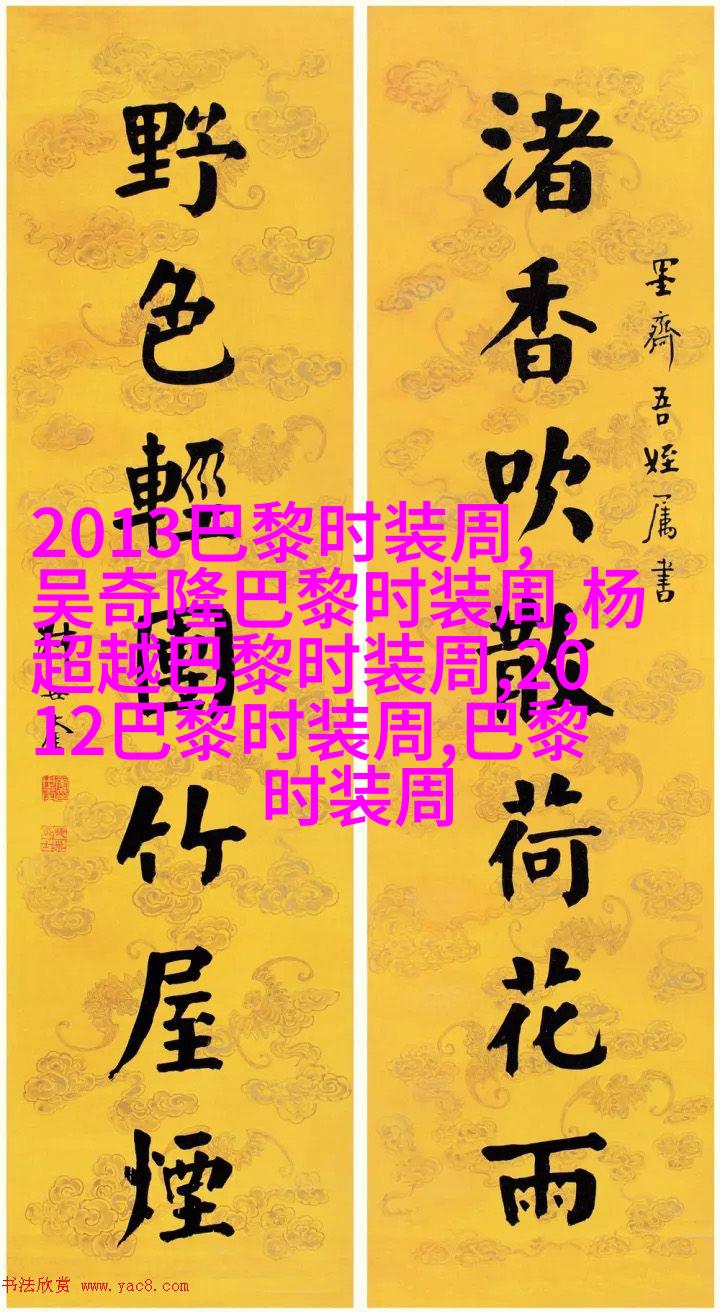 墨齋吾姪属書
渚香吹散荷花雨
野色輕團竹屋煙
2013巴黎时装周,
吴奇隆巴黎时装周,杨
超越巴黎时装周,20
12巴黎时装周,巴黎
时装周
书法欣赏 www.yac8.com